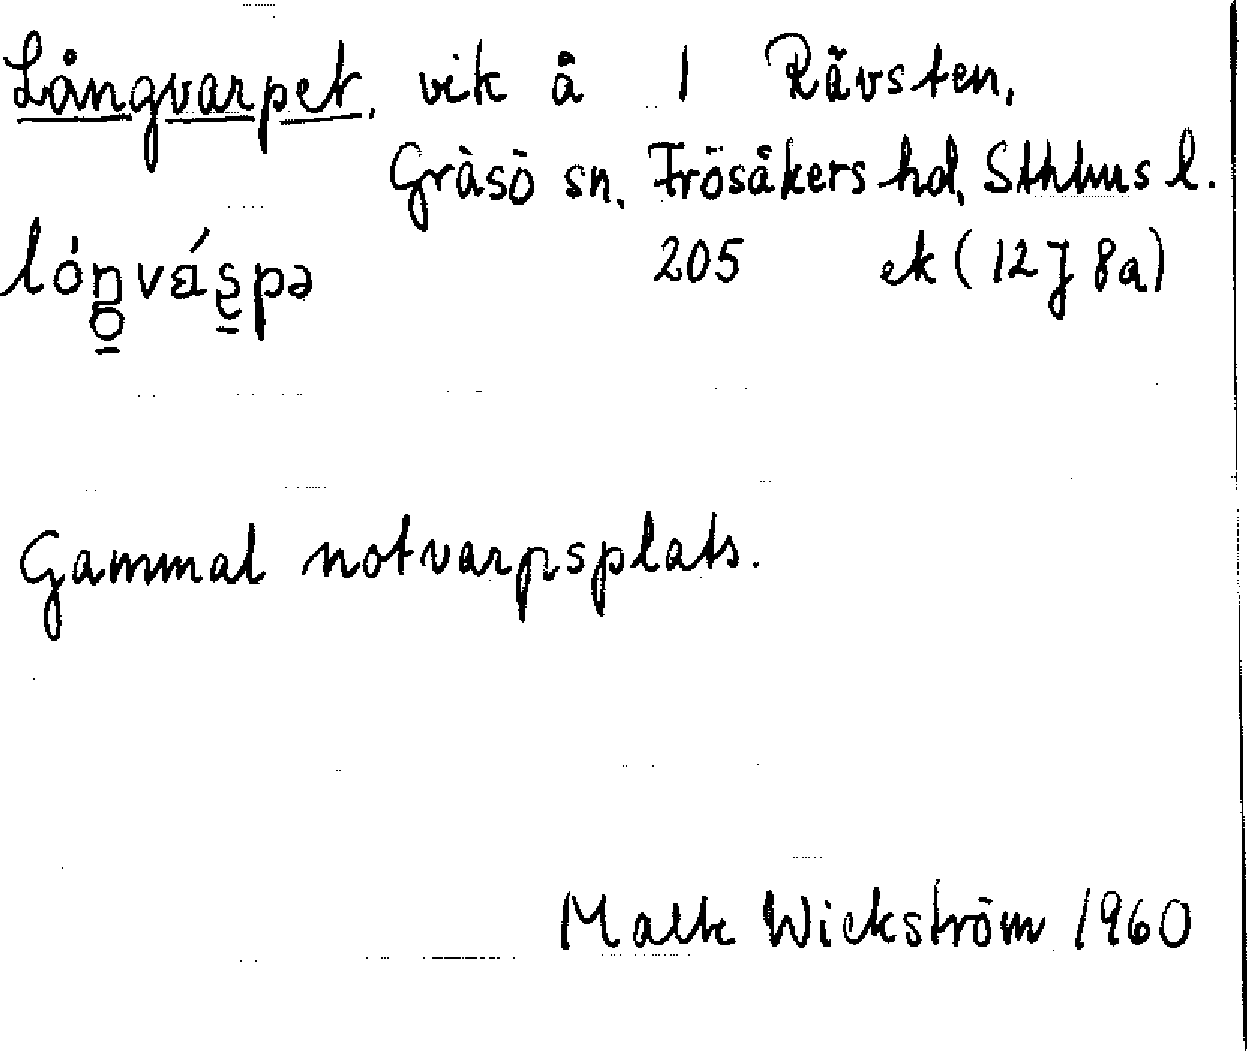 Långvarpet, vik å 1 Rävsten,
Gräsö sn, Frösåkers hd, Sthlms l.
205 ek (12 J 8a)
Gammal notvarpsplats.
Malte Wickström 1960